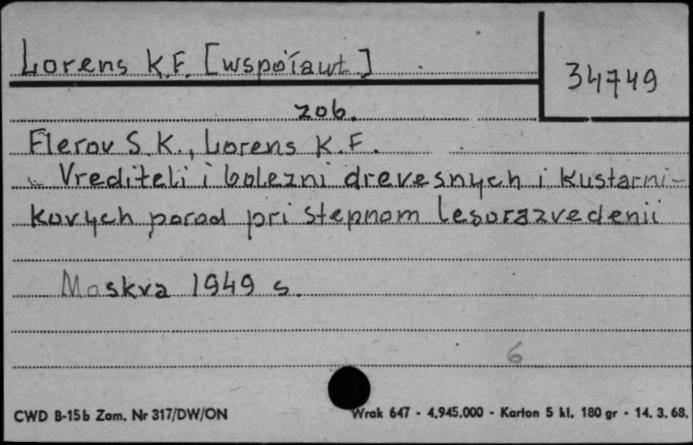 Lorens K.F. [współaut.]
34749
zob.
Flerov S.K., Lorens K.F.
Vrediteli i bolezni drevesnych i kustarni-
kovych porod pri stepnom lesorazvedenii
Moskva 1949 s.
6
CWD B-15b Zam. Nr 317/DW/ON Wrak 647 - 4.945.000 - Karton 5 kl. 180 gr - 14. 3. 68.